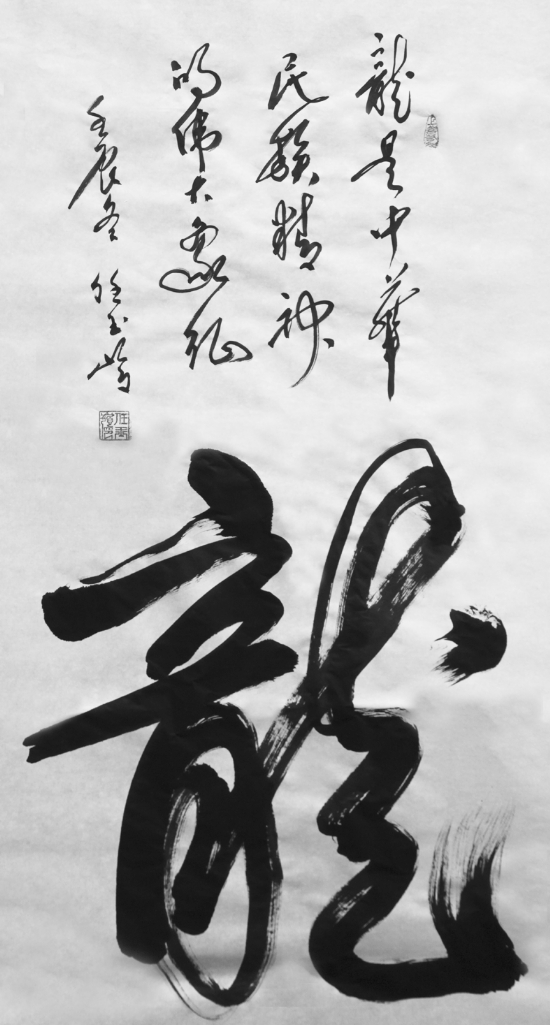 龍是中華
民族精神
的偉大象征
壬辰冬 任玉嶺
龍